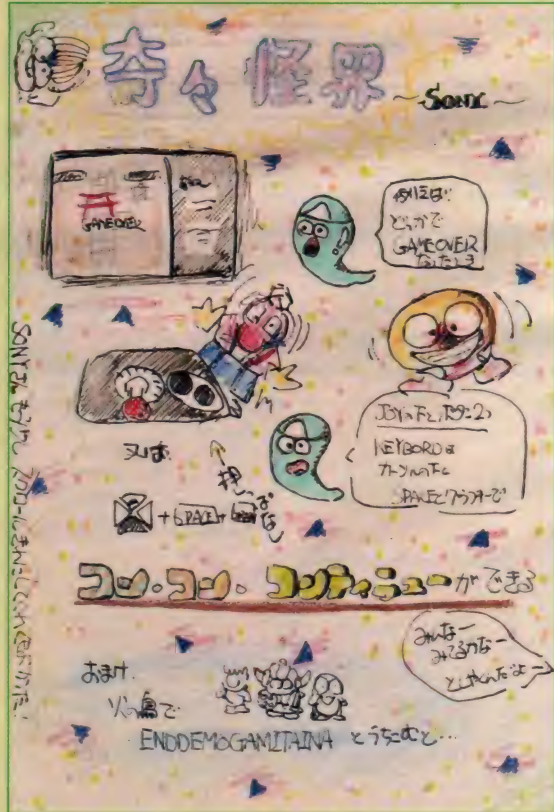 奇々怪界
~SONY~
GAMEOVER
例えば
どっかで
GAMEOVER
なったとき
JOYの下とボタン2つ
KEYBORDは
カーソルの下と
SPACEとグラフキーで
又は
押しぱなし
+SPACE+
コン・コン・コンティニューができる
みんなー
みてるかなー
としやくんだよー
おまけ.
火の鳥で
ENDDEMOGAMITAINA とうちこむと…
SONYさん もうすこし スクロールきれいにしてくれて良かった!